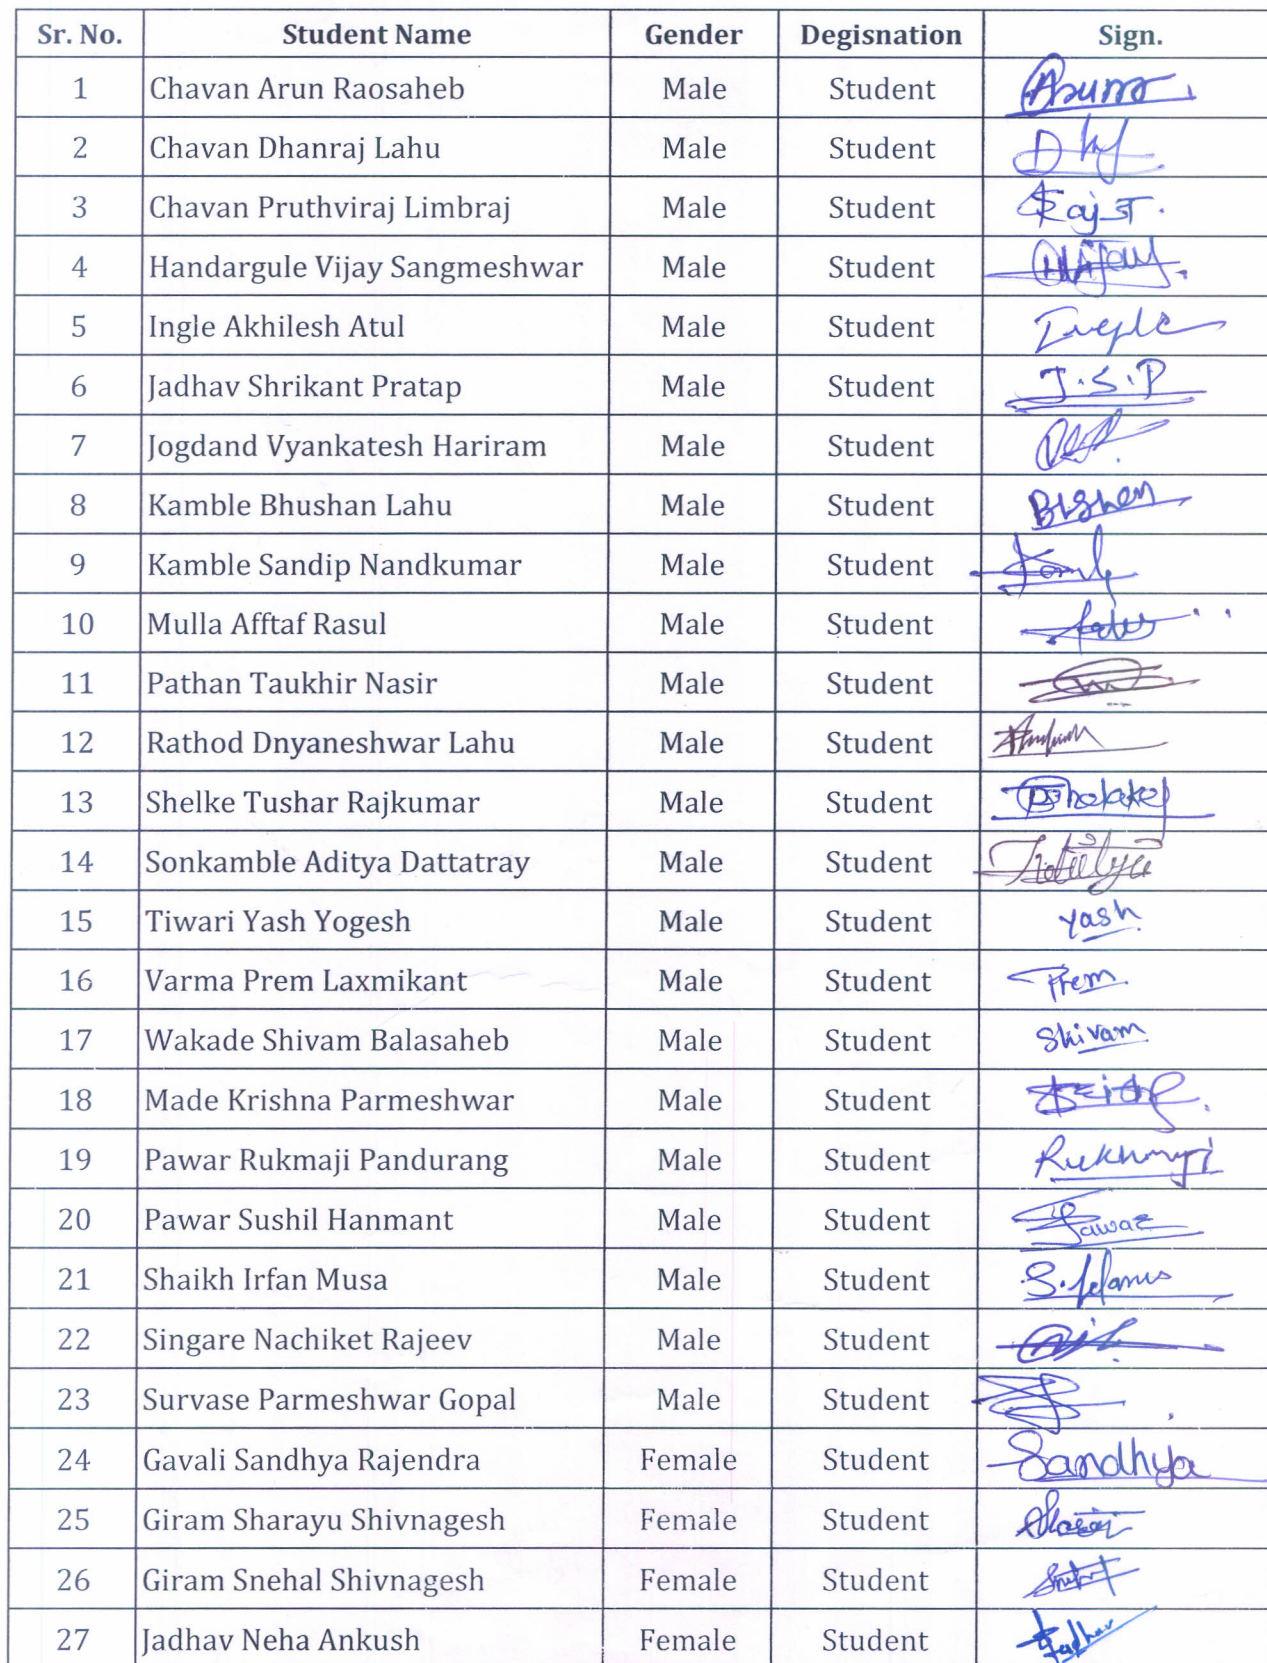 Sr. No. Student Name Gender Degisnation Sign.
1 Chavan Arun Raosaheb Male Student
2 Chavan Dhanraj Lahu Male Student
3 Chavan Pruthviraj Limbraj Male Student
4 Handargule Vijay Sangmeshwar Male Student
5 Ingle Akhilesh Atul Male Student
6 Jadhav Shrikant Pratap Male Student J.S.P
7 Jogdand Vyankatesh Hariram Male Student
8 Kamble Bhushan Lahu Male Student
9 Kamble Sandip Nandkumar Male Student
10 Mulla Afftaf Rasul Male Student
11 Pathan Taukhir Nasir Male Student
12 Rathod Dnyaneshwar Lahu Male Student
13 Shelke Tushar Rajkumar Male Student
14 Sonkamble Aditya Dattatray Male Student
15 Tiwari Yash Yogesh Male Student Yash
16 Varma Prem Laxmikant Male Student Prem
17 Wakade Shivam Balasaheb Male Student Shivam
18 Made Krishna Parmeshwar Male Student
19 Pawar Rukmaji Pandurang Male Student
20 Pawar Sushil Hanmant Male Student
21 Shaikh Irfan Musa Male Student
22 Singare Nachiket Rajeev Male Student
23 Survase Parmeshwar Gopal Male Student
24 Gavali Sandhya Rajendra Female Student Sandhya
25 Giram Sharayu Shivnagesh Female Student
26 Giram Snehal Shivnagesh Female Student
27 Jadhav Neha Ankush Female Student Jadhav